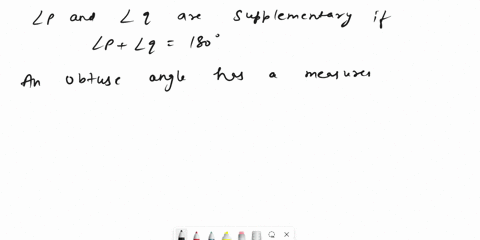 ∠P and ∠q are supplementary if
∠P + ∠q = 180°
An obtuse angle has a measures